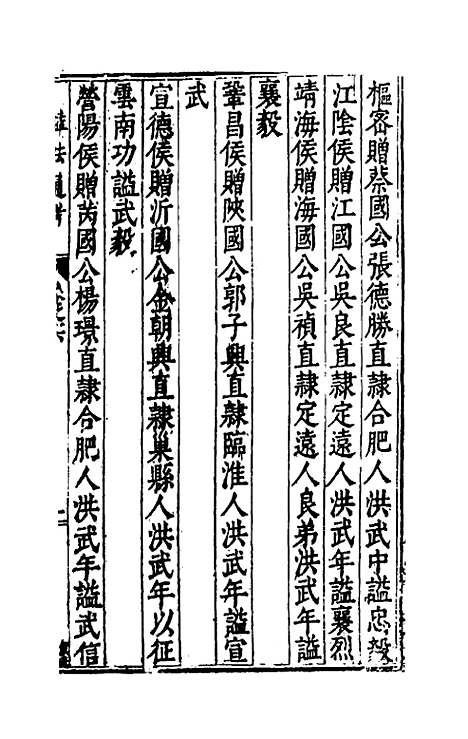 樞密贈蔡國公張德勝直隷合肥人洪武中謚忠毅
江陰侯贈江國公吳良直隷定遠人洪武年謚襄烈
靖海侯贈海國公吳禎直隷定遠人良弟洪武年謚
襄毅
鞏昌侯贈陜國公郭子興直隷臨淮人洪武年謚宣
武
宣德侯贈沂國公金朝興直隷巢縣人洪武年以征
雲南功謚武毅
營陽侯贈芮國公楊璟直隷合肥人洪武年謚武信
謚法通考